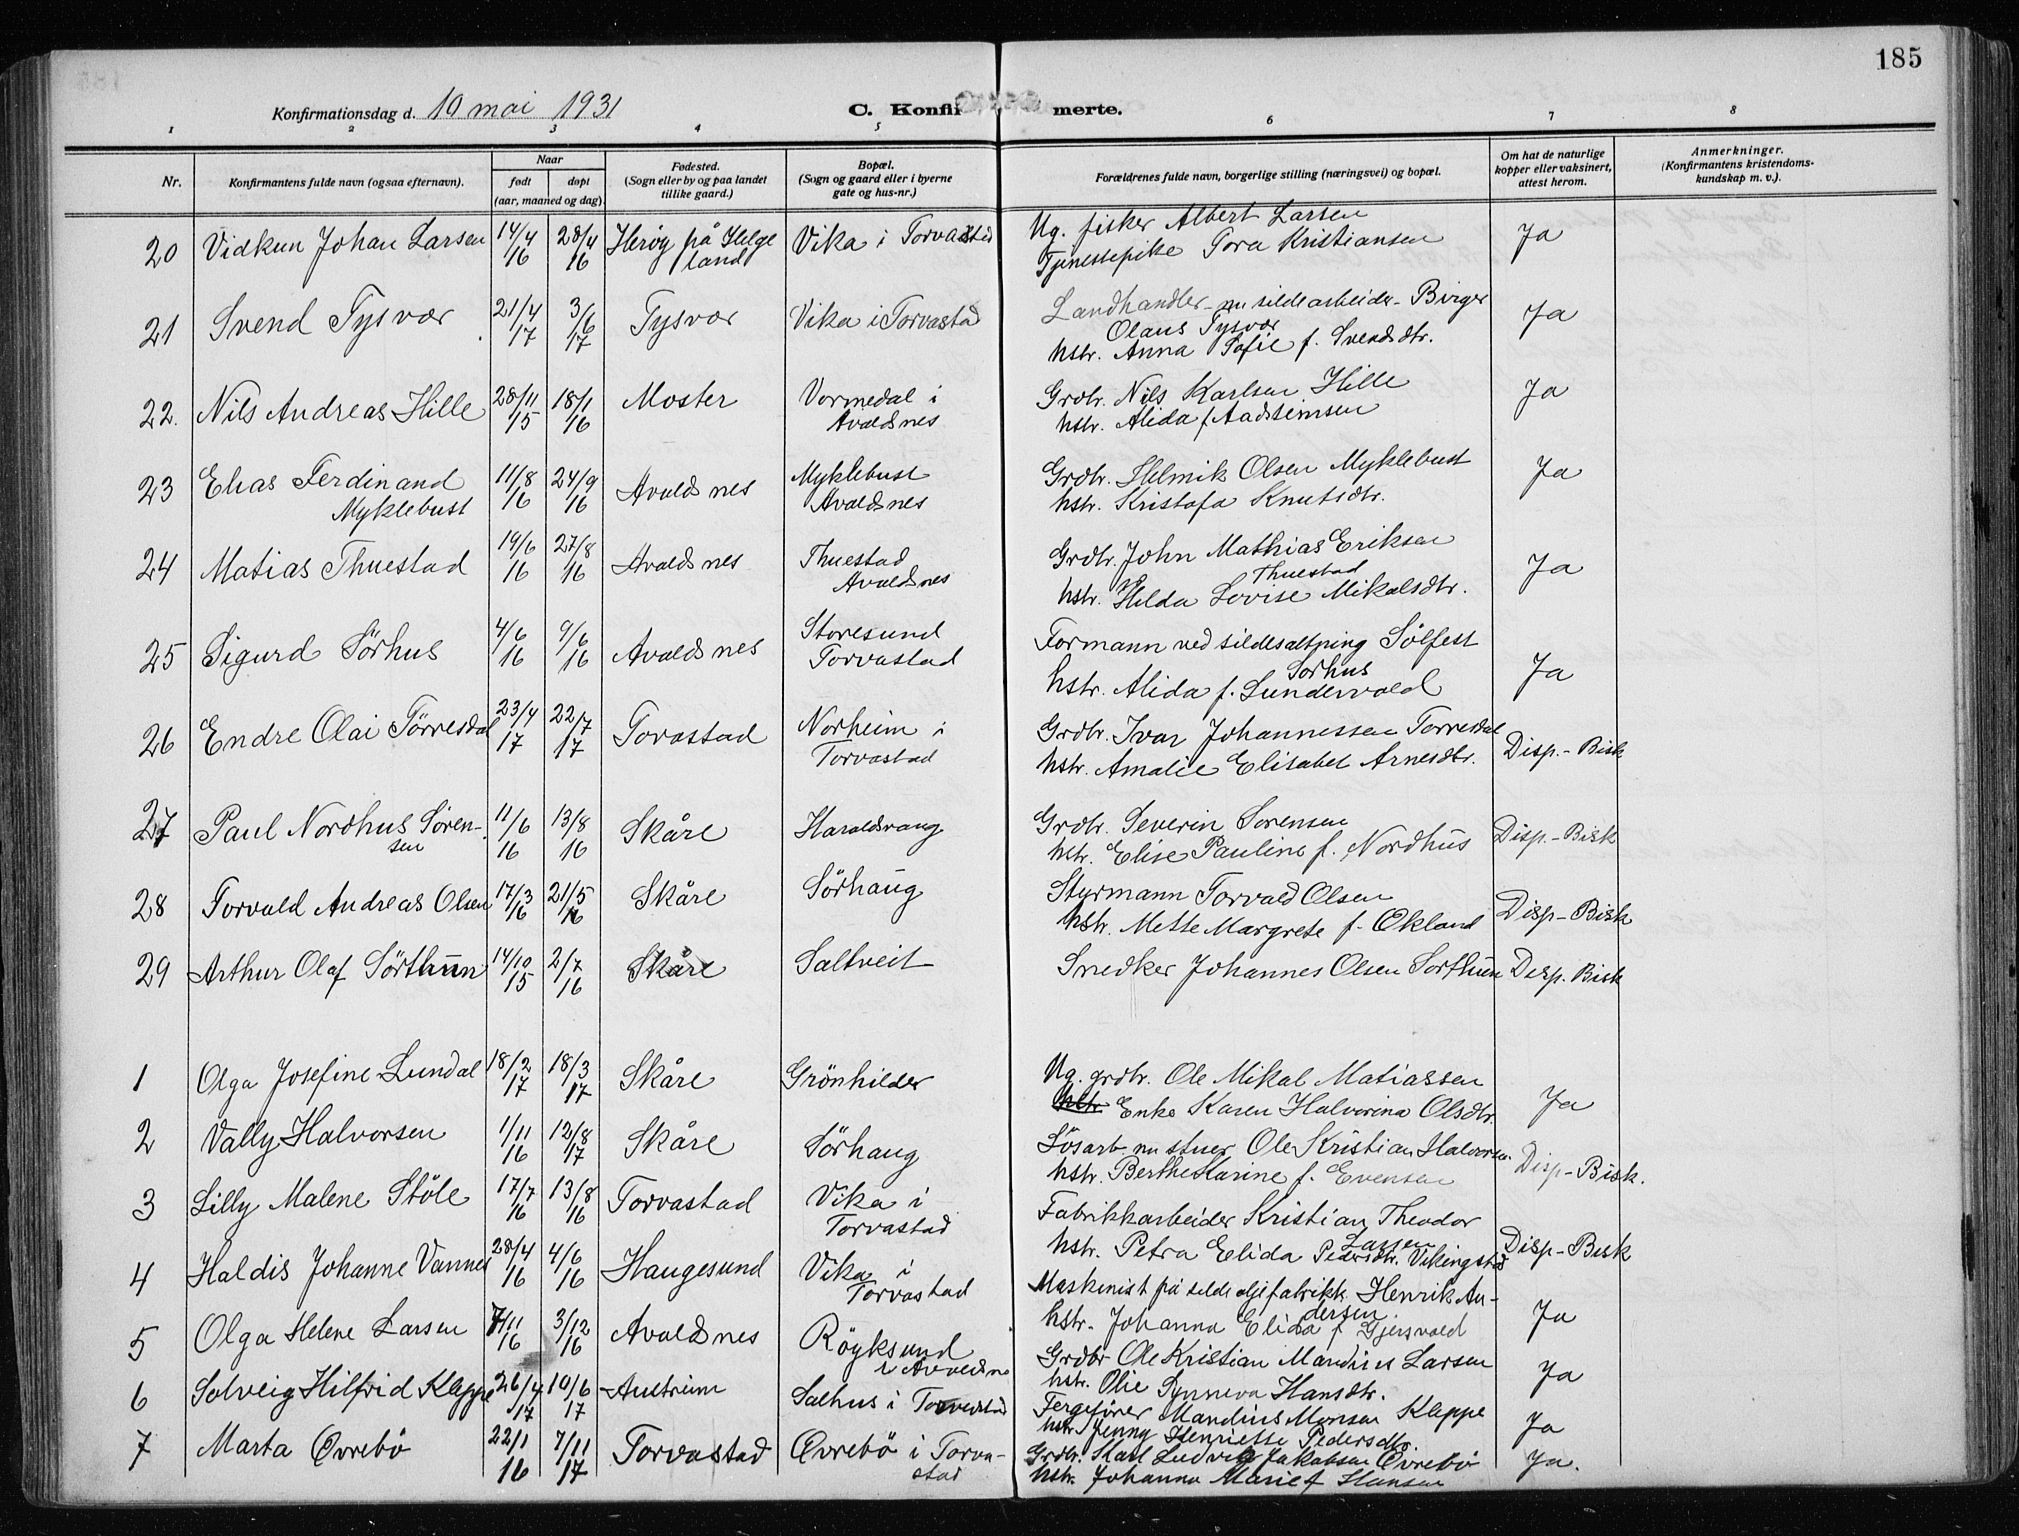 185
Konfirmationsdag d. 10 mai 1931
C. Konfirmerte.
1 2 3 4 5 6 7 8
Nr.
Konfirmantens fulde navn (ogsaa efternavn).
Naar
født
døpt
(aar, maaned og dag)
Fødested.
(Sogn eller by og paa landet
tillike gaard.)
Bopæl.
(Sogn og gaard eller i byerne
gate og hus-nr.)
Forældrenes fulde navn, borgerlige stilling (næringsvei) og bopæl.
Om hat de naturlige
kopper eller vaksinert,
attest herom.
Anmerkninger.
(Konfirmantens kristendoms-
kundskap m. v.).
20 Vidkun Johan Larsen 14/4 16 28/4 16 Herøy på Helge land Vika i Torvastad Ug. fisker Albert Larsen Ja
Tjenestepike Tora Kristiansen
21 Svend Tysvær 21/4 17 3/6 17 Tysvær Vika i Torvastad Landhandler nu sildearbeider Birger Ja
Olaus Tysvær
hstr. Anna Sofie f. Svendsdtr.
22. Nils Andreas Hille 28/11 15 18/1 16 Moster Vormedal i Avaldsnes Grdbr. Nils Karlsen Hille Ja
hstr. Alida f.
23 Elias Ferdinand Myklebust 11/8 16 24/9 16 Avaldsnes Myklebust Avaldsnes Grdbr. Helmik Olsen Myklebust Ja
hstr. Kristofa Knutsdtr.
24 Matias Thuestad 19/6 16 27/8 16 Avaldsnes Thuestad Avaldsnes Grdbr. John Mathias Eriksen Ja
Thuestad
hstr. Hilda Lovise Mikalsdtr.
25 Sigurd Sörhus 4/6 16 9/6 16 Avaldsnes Storesund Torvastad Formann ved sildesaltning Sölfest Ja
Sörhus
hstr. Alida f. Sundervold
26 Endre Olai Törresdal 23/4 17 22/7 17 Torvastad Norheim i Torvastad Grdbr. Ivar Johannessen Torresdal Disp.- Bisk
hstr. Amalie Elisabet Arnesdtr.
27 Paul Nordhus Sörensen 11/6 16 13/8 16 Skåre Haraldsvang Grdbr. Severin Sorensen Disp.- Bisk
hstr. Elise Pauline f. Nordhus
28 Torvald Andreas Olsen 17/3 16 21/5 16 Skåre Sörhaug Styrmann Torvald Olsen Disp - Bisk
hstr. Mette Margrete f. Økland
29 Arthur Olaf Sörthun 14/10 15 2/7 16 Skåre Saltveit Snedker Johannes Olsen Sorthun Disp. Bisk
1 Olga Josefine Lundal 18/2 17 18/3 17 Skåre Grönhilder Ug. grdbr. Ole Mikal Matiassen Ja
hstr. Enke Karen Halvorina Olsdtr.
2 Vally Halvorsen 1/11 16 12/8 17 Skåre Sörhaug Lösarb. nu stuer Ole Kristian Halvorsen Disp - Bisk.
hstr. Berthe Karine f. Evensen
3 Lilly Malene Stöle 17/7 16 13/8 16 Torvastad Vika i Torvastad Fabrikkarbeider Kristian Theodor Disp - Bisk
Larsen
hstr. Petra Elida Pedersdtr. Vikingstad
4 Haldis Johanne Vannes 28/4 16 4/6 16 Haugesund Vika i Torvastad Maskinist på sildoljefabrikk Henrik An- Ja
dersen
hstr. Johanna Elida f Gjersvold
5 Olga Helene Larsen 7/11 16 3/12 16 Avaldsnes Röyksund i Avaldsn Grdbr Ole Kristian Mandius Larsen Ja
hstr. Olie Synneva Hansdtr.
6 Solveig Hilfrid Kleppe 26/4 17 10/6 17 Austrim Salhus i Torvastad Fergefører Mandius Monsen Kleppe Ja
hstr. Jenny Henriette Pedersdtr.
7 Marta Øvrebö 22/1 16 7/11 17 Torvastad Øvrebö i Torva- stad Grdbr. Karl Ludvig Jakobsen Øvrebö Ja.
hstr. Johanna Marie f Hansen